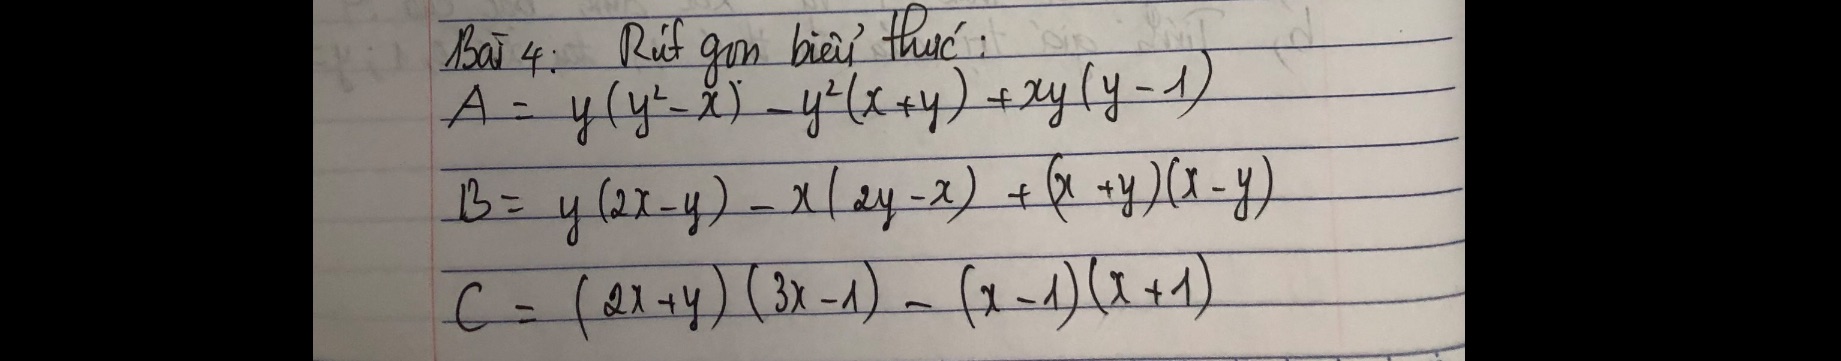 Bài 4: Rút gọn biểu thức:
A = y(y² - x) - y²(x + y) + xy(y - 1)
B = y(2x - y) - x(2y - x) + (x + y)(x - y)
C = (2x + y)(3x - 1) - (x - 1)(x + 1)